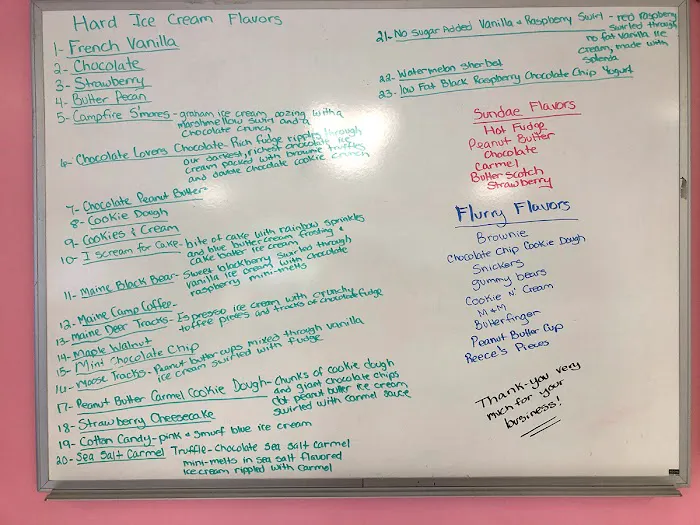 Hard Ice Cream Flavors
1- French Vanilla
2- Chocolate
3- Strawberry
4- Butter Pecan
5- Campfire S'mores - graham ice cream oozing with a
marshmellow swirl and a
chocolate crunch
6- Chocolate Lovers Chocolate - Rich fudge ripples through
our darkest, richest chocolate ice
cream packed with brownie truffles
and double chocolate cookie crunch
7- Chocolate Peanut Butter
8- Cookie Dough
9- Cookies & Cream
10- I scream for Cake - bite of cake with rainbow sprinkles
and blue buttercream frosting &
cake batter ice cream
11- Maine Black Bear - Sweet blackberry swirled through
vanilla ice cream with chocolate
raspberry mini-melts
12- Maine Camp Coffee -
13- Maine Deer Tracks - Espresso ice cream with crunchy
toffee pieces and tracks of chocolate fudge
14- Maple Walnut
15- Mint Chocolate Chip
16- Moose Tracks - Peanut butter cups mixed through vanilla
ice cream swirled with fudge
17- Peanut Butter Carmel Cookie Dough - Chunks of cookie dough
and giant chocolate chips
dot peanut butter ice cream
swirled with carmel sauce
18- Strawberry Cheesecake
19- Cotton Candy - pink & smurf blue ice cream
20- Sea Salt Carmel Truffle - Chocolate sea salt carmel
mini-melts in sea salt flavored
ice cream rippled with carmel
21- No Sugar Added Vanilla & Raspberry Swirl - red raspberry
swirled through
no fat vanilla ice
cream, made with
splenda
22- Watermelon Sherbet
23- low Fat Black Raspberry Chocolate Chip Yogurt
Sundae Flavors
Hot Fudge
Peanut Butter
Chocolate
Carmel
Butter Scotch
Strawberry
Flurry Flavors
Brownie
Chocolate Chip Cookie Dough
Snickers
gummy bears
Cookie N' Cream
M & M
Butterfinger
Peanut Butter Cup
Reece's Pieces
Thank-you very
much for your
business!